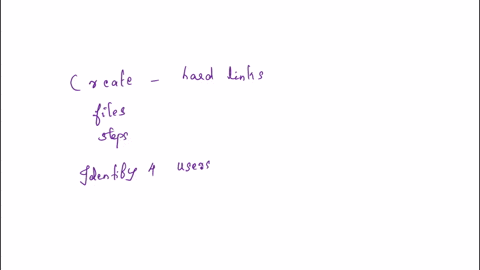 Create - hard links
files
steps
Identify 4 users